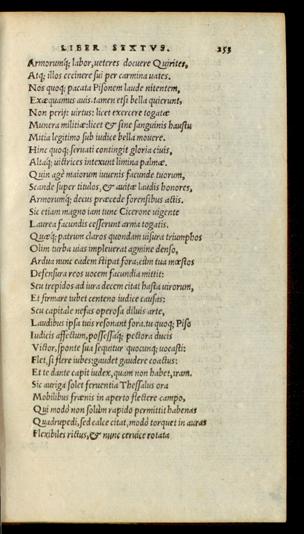 LIBER SEXTVS. 253
Armorumq; labor, ueteres docuere Quirites,
Atq; illos cecinere sui per carmina uates.
Nos quoq; pacata Pisonem laude nitentem,
Exæquamus auis. tamen etsi bella quierunt,
Non perijt uirtus: licet exercere togatæ
Munera militiæ: licet & sine sanguinis haustu
Mitia legitimo sub iudice bella mouere.
Hinc quoq; seruati contingit gloria ciuis,
Altaq; uictrices intexunt limina palmæ.
Quin age maiorum iuuenis facunde tuorum,
Scande super titulos, & auitæ laudis honores,
Armorumq; decus præcede forensibus actis.
Sic etiam magno iam tunc Cicerone uigente
Laurea facundis cesserunt arma togatis.
Quæq; patrum claros quondam uisura triumphos
Olim turba uias impleuerat agmine denso,
Ardua nunc eadem stipat fora: cum tua mœstos
Defensura reos uocem facundia mittit:
Seu trepidos ad iura decem citat hasta uirorum,
Et firmare iubet centeno iudice causas:
Seu capitale nefas operosa diluis arte,
Laudibus ipsa tuis resonant fora. tu quoq; Piso
Iudicis affectum, possessaq; pectora ducis
Victor, sponte sua sequitur quocunq; uocasti:
Flet, si flere iubes: gaudet gaudere coactus:
Et te dante capit iudex, quam non habet, iram.
Sic auriga solet feruentia Thessalus ora
Mobilibus frænis in aperto flectere campo,
Qui modò non solùm rapido permittit habenas
Quadrupedi, sed calce citat, modò torquet in auras
Flexibiles rictus, & nunc ceruice rotata